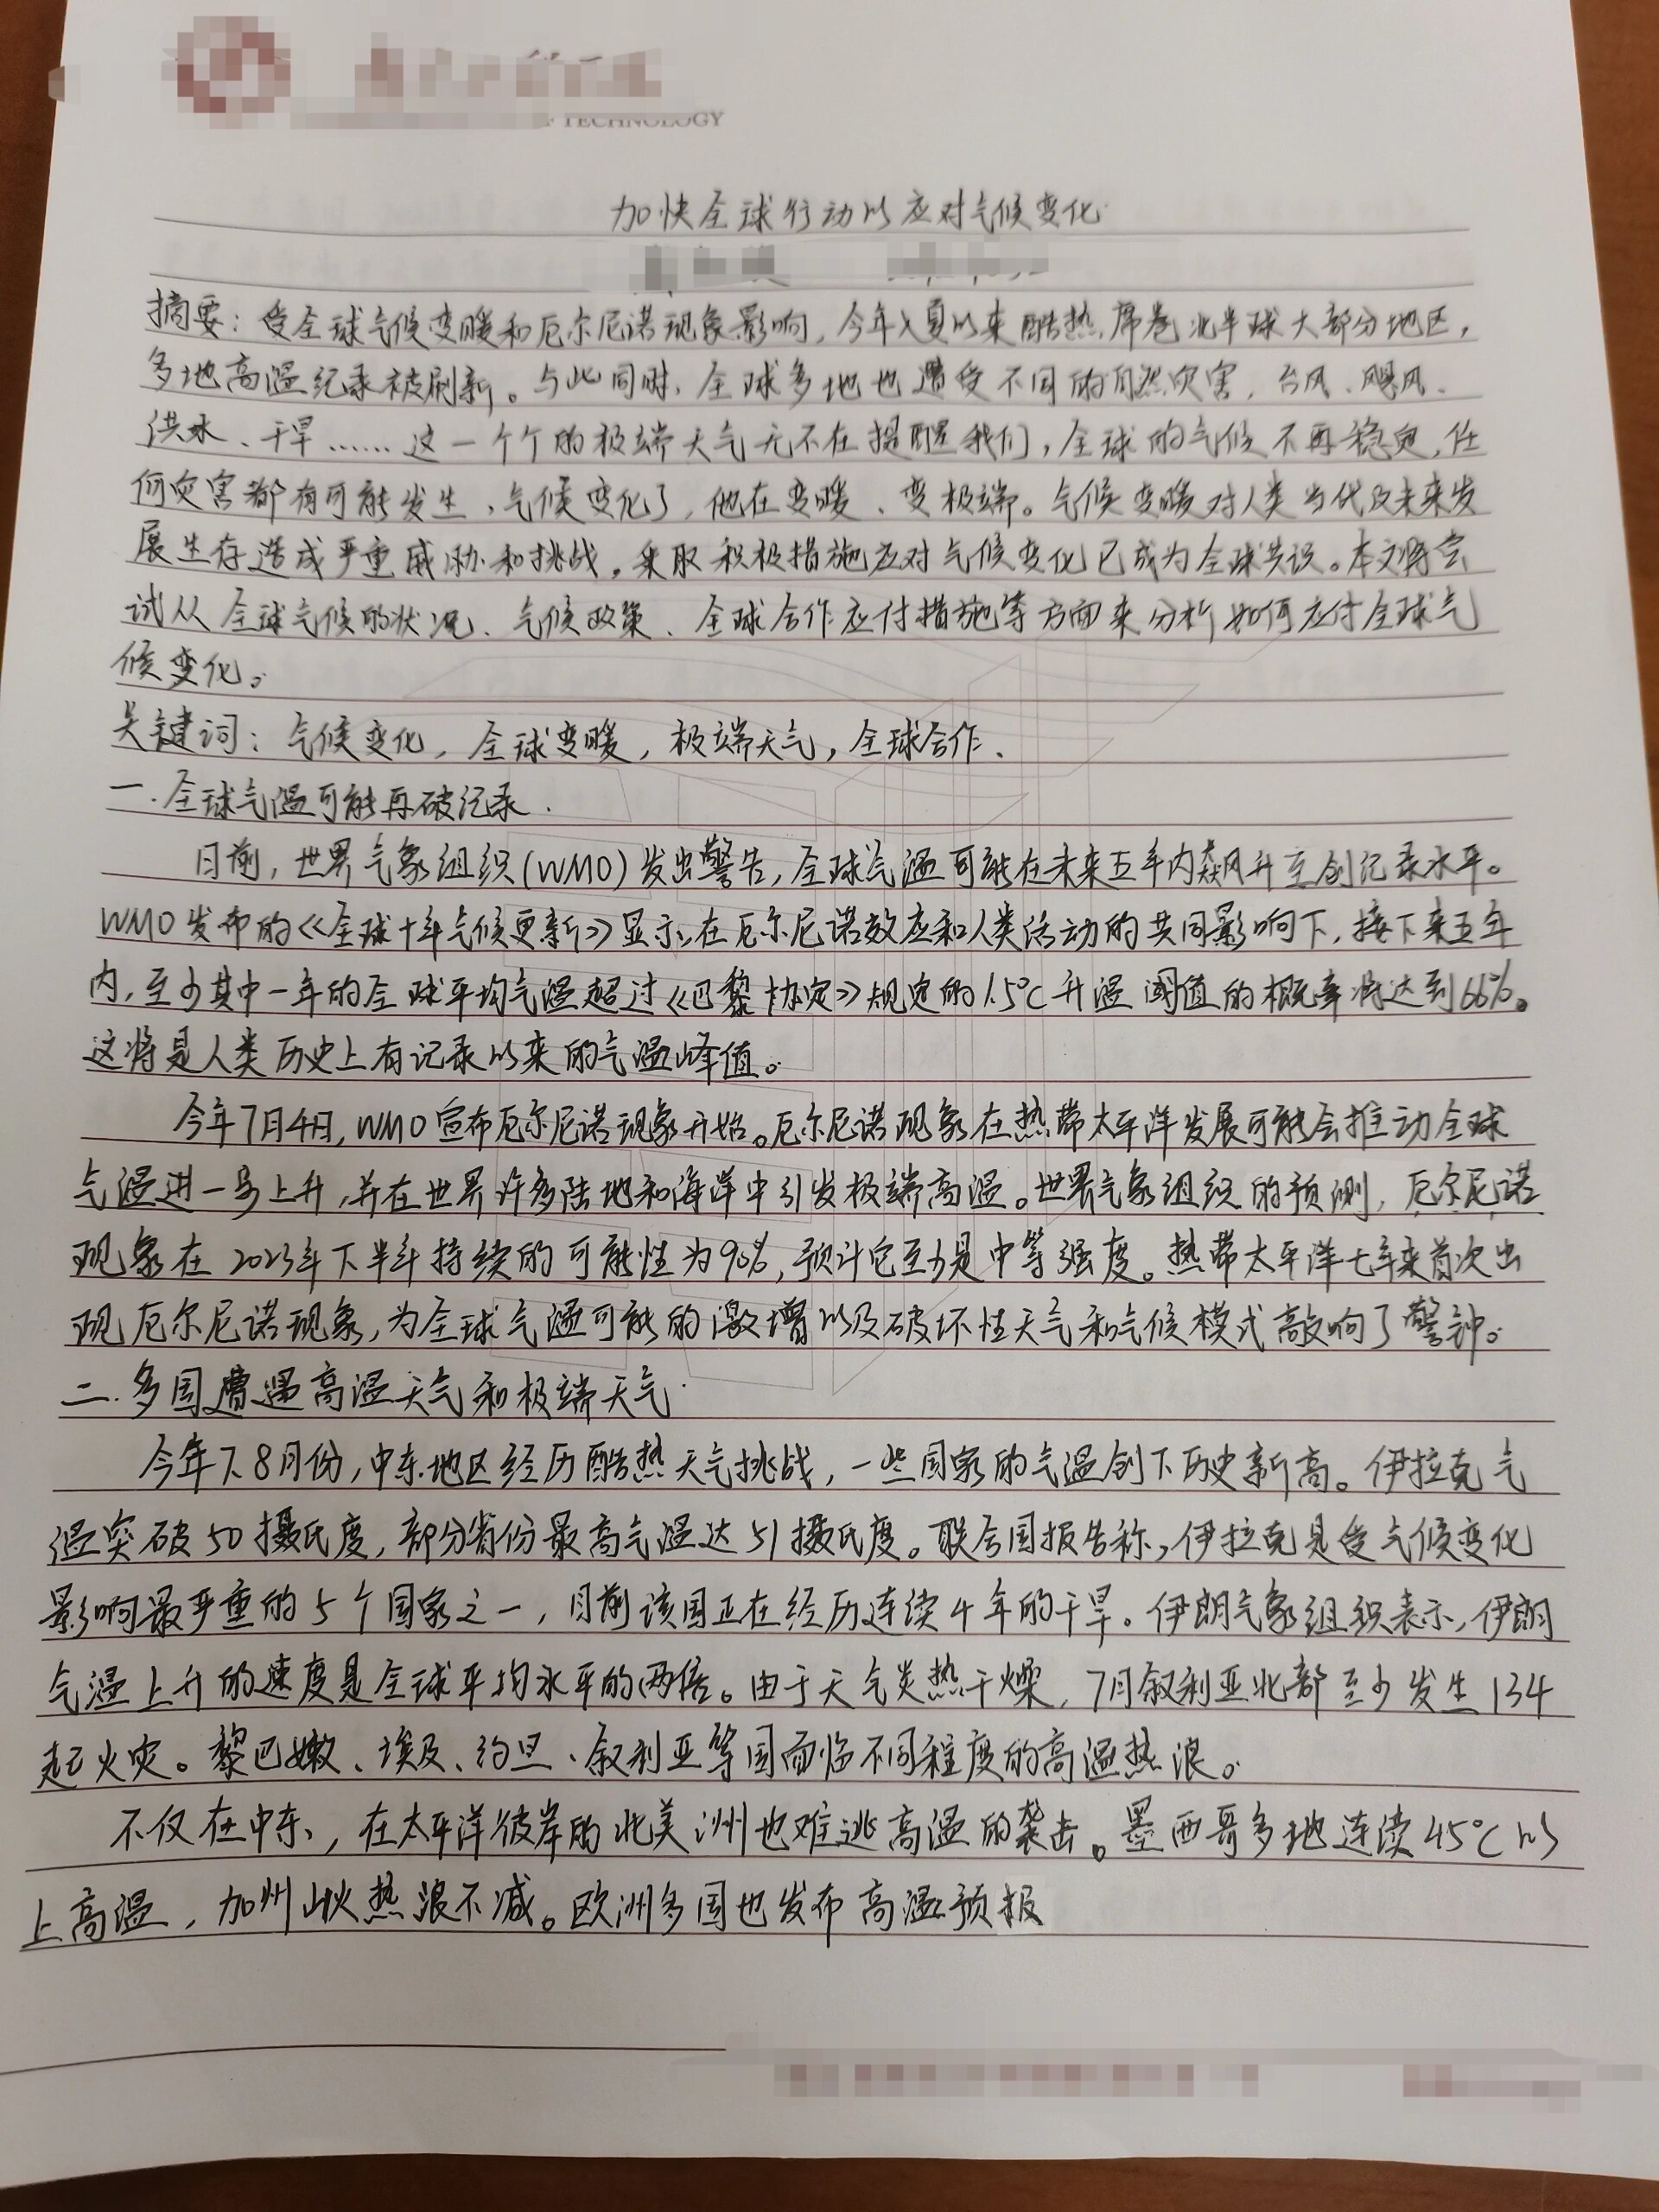 TECHNOLOGY
加快全球行动以应对气候变化
摘要：受全球气候变暖和厄尔尼诺现象影响，今年入夏以来酷热席卷北半球大部分地区，
多地高温纪录被刷新。与此同时，全球多地也遭受不同的自然灾害，台风、飓风、
洪水、干旱……这一个个的极端天气无不在提醒我们，全球的气候不再稳定，任
何灾害都有可能发生，气候变化了，他在变暖、变极端。气候变暖对人类当代及未来发
展生存造成严重威胁和挑战，采取积极措施应对气候变化已成为全球共识。本文将尝
试从全球气候的状况、气候政策、全球合作应付措施等方面来分析如何应付全球气
候变化。
关键词：气候变化，全球变暖，极端天气，全球合作、
一.全球气温可能再破记录.
日前，世界气象组织(WMO)发出警告，全球气温可能在未来五年内飙升至创记录水平。
WMO发布的《全球十年气候更新》显示，在厄尔尼诺效应和人类活动的共同影响下，接下来五年
内，至少其中一年的全球平均气温超过《巴黎协定》规定的1.5℃升温阈值的概率将达到66%。
这将是人类历史上有记录以来的气温峰值。
今年7月4日，WMO宣布厄尔尼诺现象开始。厄尔尼诺现象在热带太平洋发展可能会推动全球
气温进一步上升，并在世界许多陆地和海洋中引发极端高温。世界气象组织的预测，厄尔尼诺
现象在2023年下半年持续的可能性为90%，预计它至少是中等强度。热带太平洋七年来首次出
现厄尔尼诺现象，为全球气温可能的激增以及破坏性天气和气候模式敲响了警钟。
二.多国遭遇高温天气和极端天气.
今年7、8月份，中东地区经历酷热天气挑战，一些国家的气温创下历史新高。伊拉克气
温突破50摄氏度，部分省份最高气温达51摄氏度。联合国报告称，伊拉克是受气候变化
影响最严重的5个国家之一，目前该国正在经历连续4年的干旱。伊朗气象组织表示，伊朗
气温上升的速度是全球平均水平的两倍。由于天气炎热干燥，7月叙利亚北部至少发生134
起火灾。黎巴嫩、埃及、约旦、叙利亚等国面临不同程度的高温热浪。
不仅在中东，在太平洋彼岸的北美洲也难逃高温的袭击。墨西哥多地连续45℃以
上高温，加州山火热浪不减。欧洲多国也发布高温预报